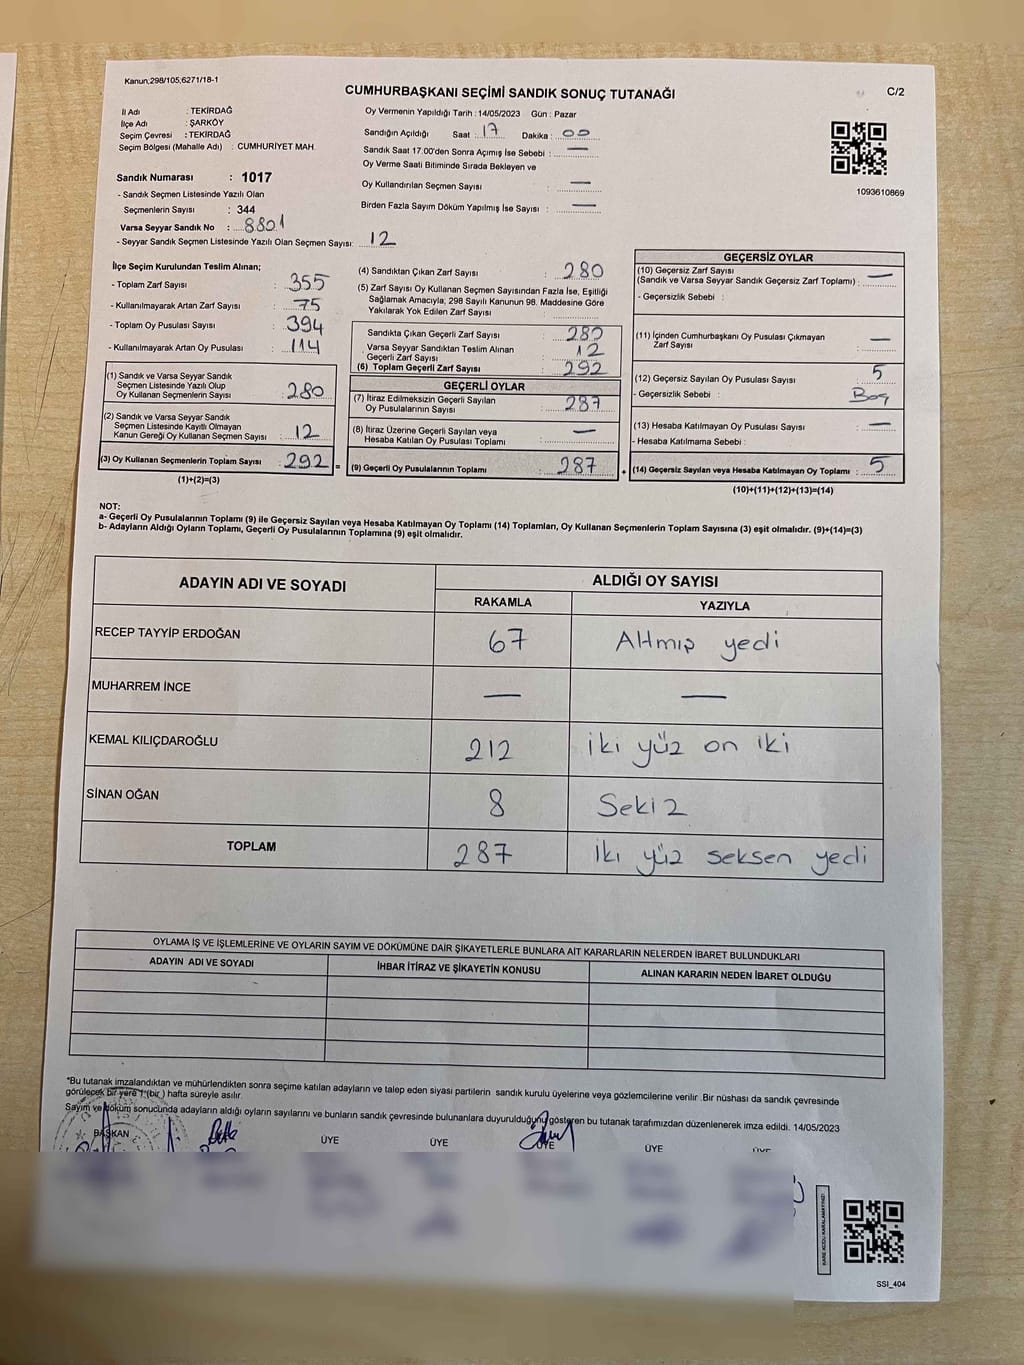 Kanun;298/105;6271/18-1
CUMHURBAŞKANI SEÇİMİ SANDIK SONUÇ TUTANAĞI
C/2
İl Adı : TEKİRDAĞ
İlçe Adı : ŞARKÖY
Seçim Çevresi : TEKİRDAĞ
Seçim Bölgesi (Mahalle Adı) : CUMHURİYET MAH.
Oy Vermenin Yapıldığı Tarih : 14/05/2023 Gün : Pazar
Sandığın Açıldığı Saat : 17 Dakika : 00
Sandık Saat 17:00'den Sonra Açımış İse Sebebi : —
Oy Verme Saati Bitiminde Sırada Bekleyen ve
Oy Kullandırılan Seçmen Sayısı : —
Birden Fazla Sayım Döküm Yapılmış İse Sayısı : —
1093610869
Sandık Numarası : 1017
- Sandık Seçmen Listesinde Yazılı Olan
Seçmenlerin Sayısı : 344
Varsa Seyyar Sandık No : 8801
- Seyyar Sandık Seçmen Listesinde Yazılı Olan Seçmen Sayısı: 12
İlçe Seçim Kurulundan Teslim Alınan;
- Toplam Zarf Sayısı : 355
- Kullanılmayarak Artan Zarf Sayısı : 75
- Toplam Oy Pusulası Sayısı : 394
- Kullanılmayarak Artan Oy Pusulası : 114
(1) Sandık ve Varsa Seyyar Sandık
Seçmen Listesinde Yazılı Olup
Oy Kullanan Seçmenlerin Sayısı : 280
(2) Sandık ve Varsa Seyyar Sandık
Seçmen Listesinde Kayıtlı Olmayan
Kanun Gereği Oy Kullanan Seçmen Sayısı : 12
(3) Oy Kullanan Seçmenlerin Toplam Sayısı : 292 =
(1)+(2)=(3)
(4) Sandıktan Çıkan Zarf Sayısı : 280
(5) Zarf Sayısı Oy Kullanan Seçmen Sayısından Fazla İse, Eşitliği
Sağlamak Amacıyla, 298 Sayılı Kanunun 98. Maddesine Göre
Yakılarak Yok Edilen Zarf Sayısı :
Sandıkta Çıkan Geçerli Zarf Sayısı : 280
Varsa Seyyar Sandıktan Teslim Alınan
Geçerli Zarf Sayısı : 12
(6) Toplam Geçerli Zarf Sayısı : 292
GEÇERLİ OYLAR
(7) İtiraz Edilmeksizin Geçerli Sayılan
Oy Pusulalarının Sayısı : 287
(8) İtiraz Üzerine Geçerli Sayılan veya
Hesaba Katılan Oy Pusulası Toplamı : —
(9) Geçerli Oy Pusulalarının Toplamı : 287 +
GEÇERSİZ OYLAR
(10) Geçersiz Zarf Sayısı
(Sandık ve Varsa Seyyar Sandık Geçersiz Zarf Toplamı) : —
- Geçersizlik Sebebi :
(11) İçinden Cumhurbaşkanı Oy Pusulası Çıkmayan
Zarf Sayısı : —
(12) Geçersiz Sayılan Oy Pusulası Sayısı : 5
- Geçersizlik Sebebi : Boş
(13) Hesaba Katılmayan Oy Pusulası Sayısı : —
- Hesaba Katılmama Sebebi :
(14) Geçersiz Sayılan veya Hesaba Katılmayan Oy Toplamı : 5
(10)+(11)+(12)+(13)=(14)
NOT:
a- Geçerli Oy Pusulalarının Toplamı (9) ile Geçersiz Sayılan veya Hesaba Katılmayan Oy Toplamı (14) Toplamları, Oy Kullanan Seçmenlerin Toplam Sayısına (3) eşit olmalıdır. (9)+(14)=(3)
b- Adayların Aldığı Oyların Toplamı, Geçerli Oy Pusulalarının Toplamına (9) eşit olmalıdır.
ADAYIN ADI VE SOYADI ALDIĞI OY SAYISI
RAKAMLA YAZIYLA
RECEP TAYYİP ERDOĞAN 67 Altmış yedi
MUHARREM İNCE — —
KEMAL KILIÇDAROĞLU 212 iki yüz on iki
SİNAN OĞAN 8 Sekiz
TOPLAM 287 İki yüz seksen yedi
OYLAMA İŞ VE İŞLEMLERİNE VE OYLARIN SAYIM VE DÖKÜMÜNE DAİR ŞİKAYETLERLE BUNLARA AİT KARARLARIN NELERDEN İBARET BULUNDUKLARI
ADAYIN ADI VE SOYADI İHBAR İTİRAZ VE ŞİKAYETİN KONUSU ALINAN KARARIN NEDEN İBARET OLDUĞU
*Bu tutanak imzalandıktan ve mühürlendikten sonra seçime katılan adayların ve talep eden siyasi partilerin sandık kurulu üyelerine veya gözlemcilerine verilir .Bir nüshası da sandık çevresinde
görülecek bir yere 1 (bir ) hafta süreyle asılır.
Sayım ve döküm sonucunda adayların aldığı oyların sayılarını ve bunların sandık çevresinde bulunanlara duyurulduğunu gösteren bu tutanak tarafımızdan düzenlenerek imza edildi. 14/05/2023
BAŞKAN ÜYE ÜYE ÜYE ÜYE ÜYE
KARE KODU KARALAMAYINIZ!
SSI_404